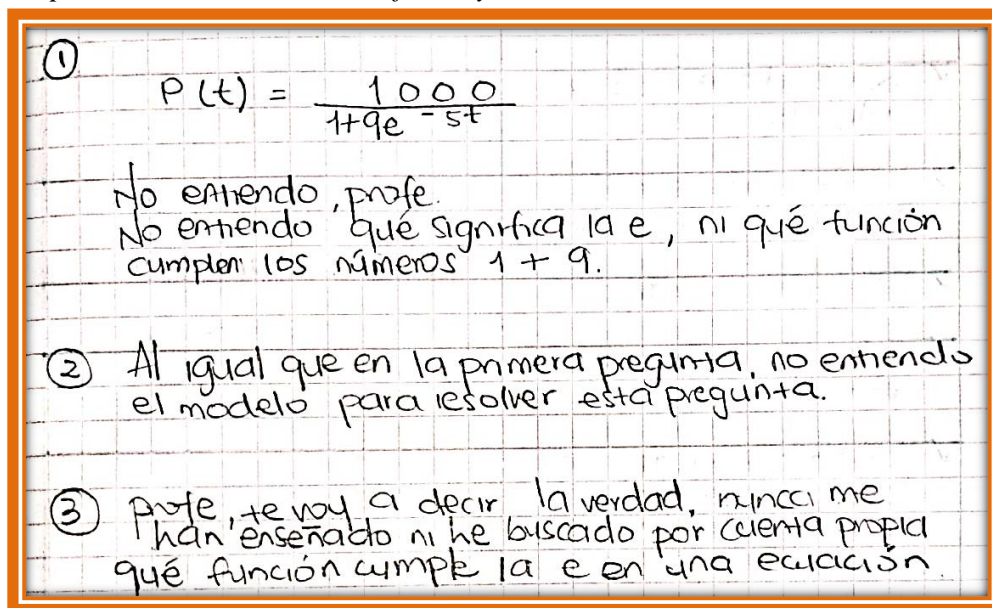 ①
P(t) = 1000
1+9e^-5t
No entiendo, profe.
No entiendo qué significa la e, ni qué función
cumplen los números 1 + 9.
② Al igual que en la primera pregunta, no entiendo
el modelo para resolver esta pregunta.
③ profe, te voy a decir la verdad, nunca me
han enseñado ni he buscado por cuenta propia
qué función cumple la e en una ecuación.